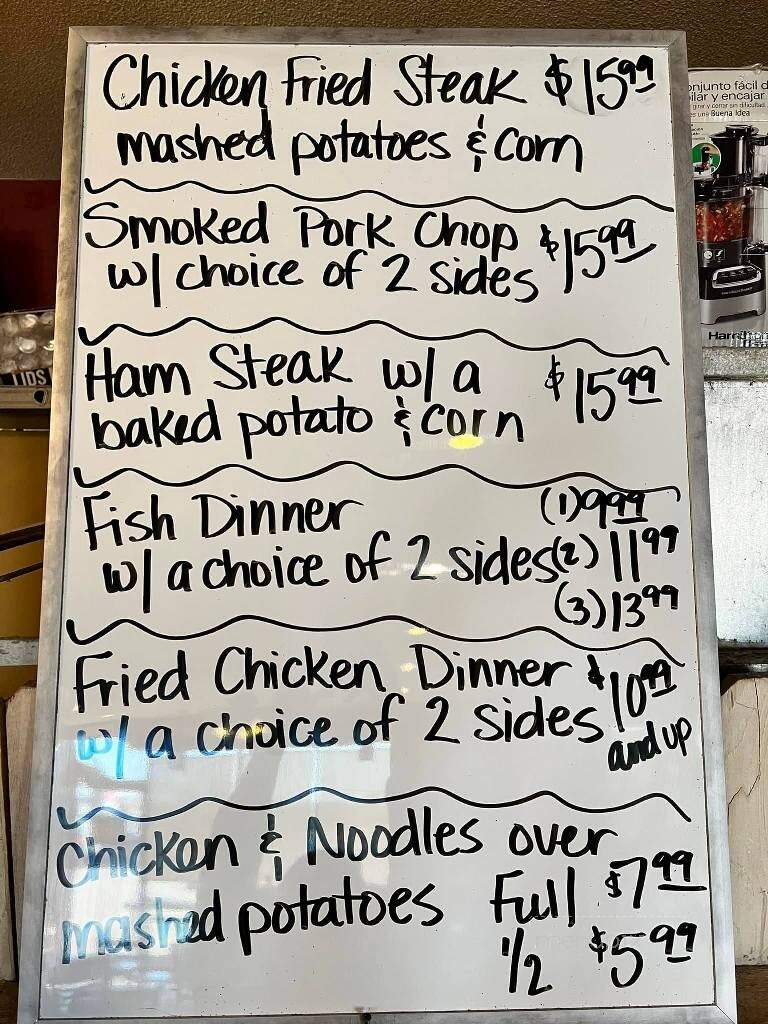 Chicken Fried Steak $15.99
mashed potatoes & corn
Smoked Pork Chop $15.99
w/ choice of 2 sides
Ham Steak w/ a $15.99
baked potato & corn
Fish Dinner (1) 9.99
w/ a choice of 2 sides (2) 11.99
(3) 13.99
Fried Chicken Dinner $10.99
w/ a choice of 2 sides and up
Chicken & Noodles over
mashed potatoes Full $7.99
1/2 $5.99
onjunto fácil d
ilar y encajar
Buena Idea
LIDS